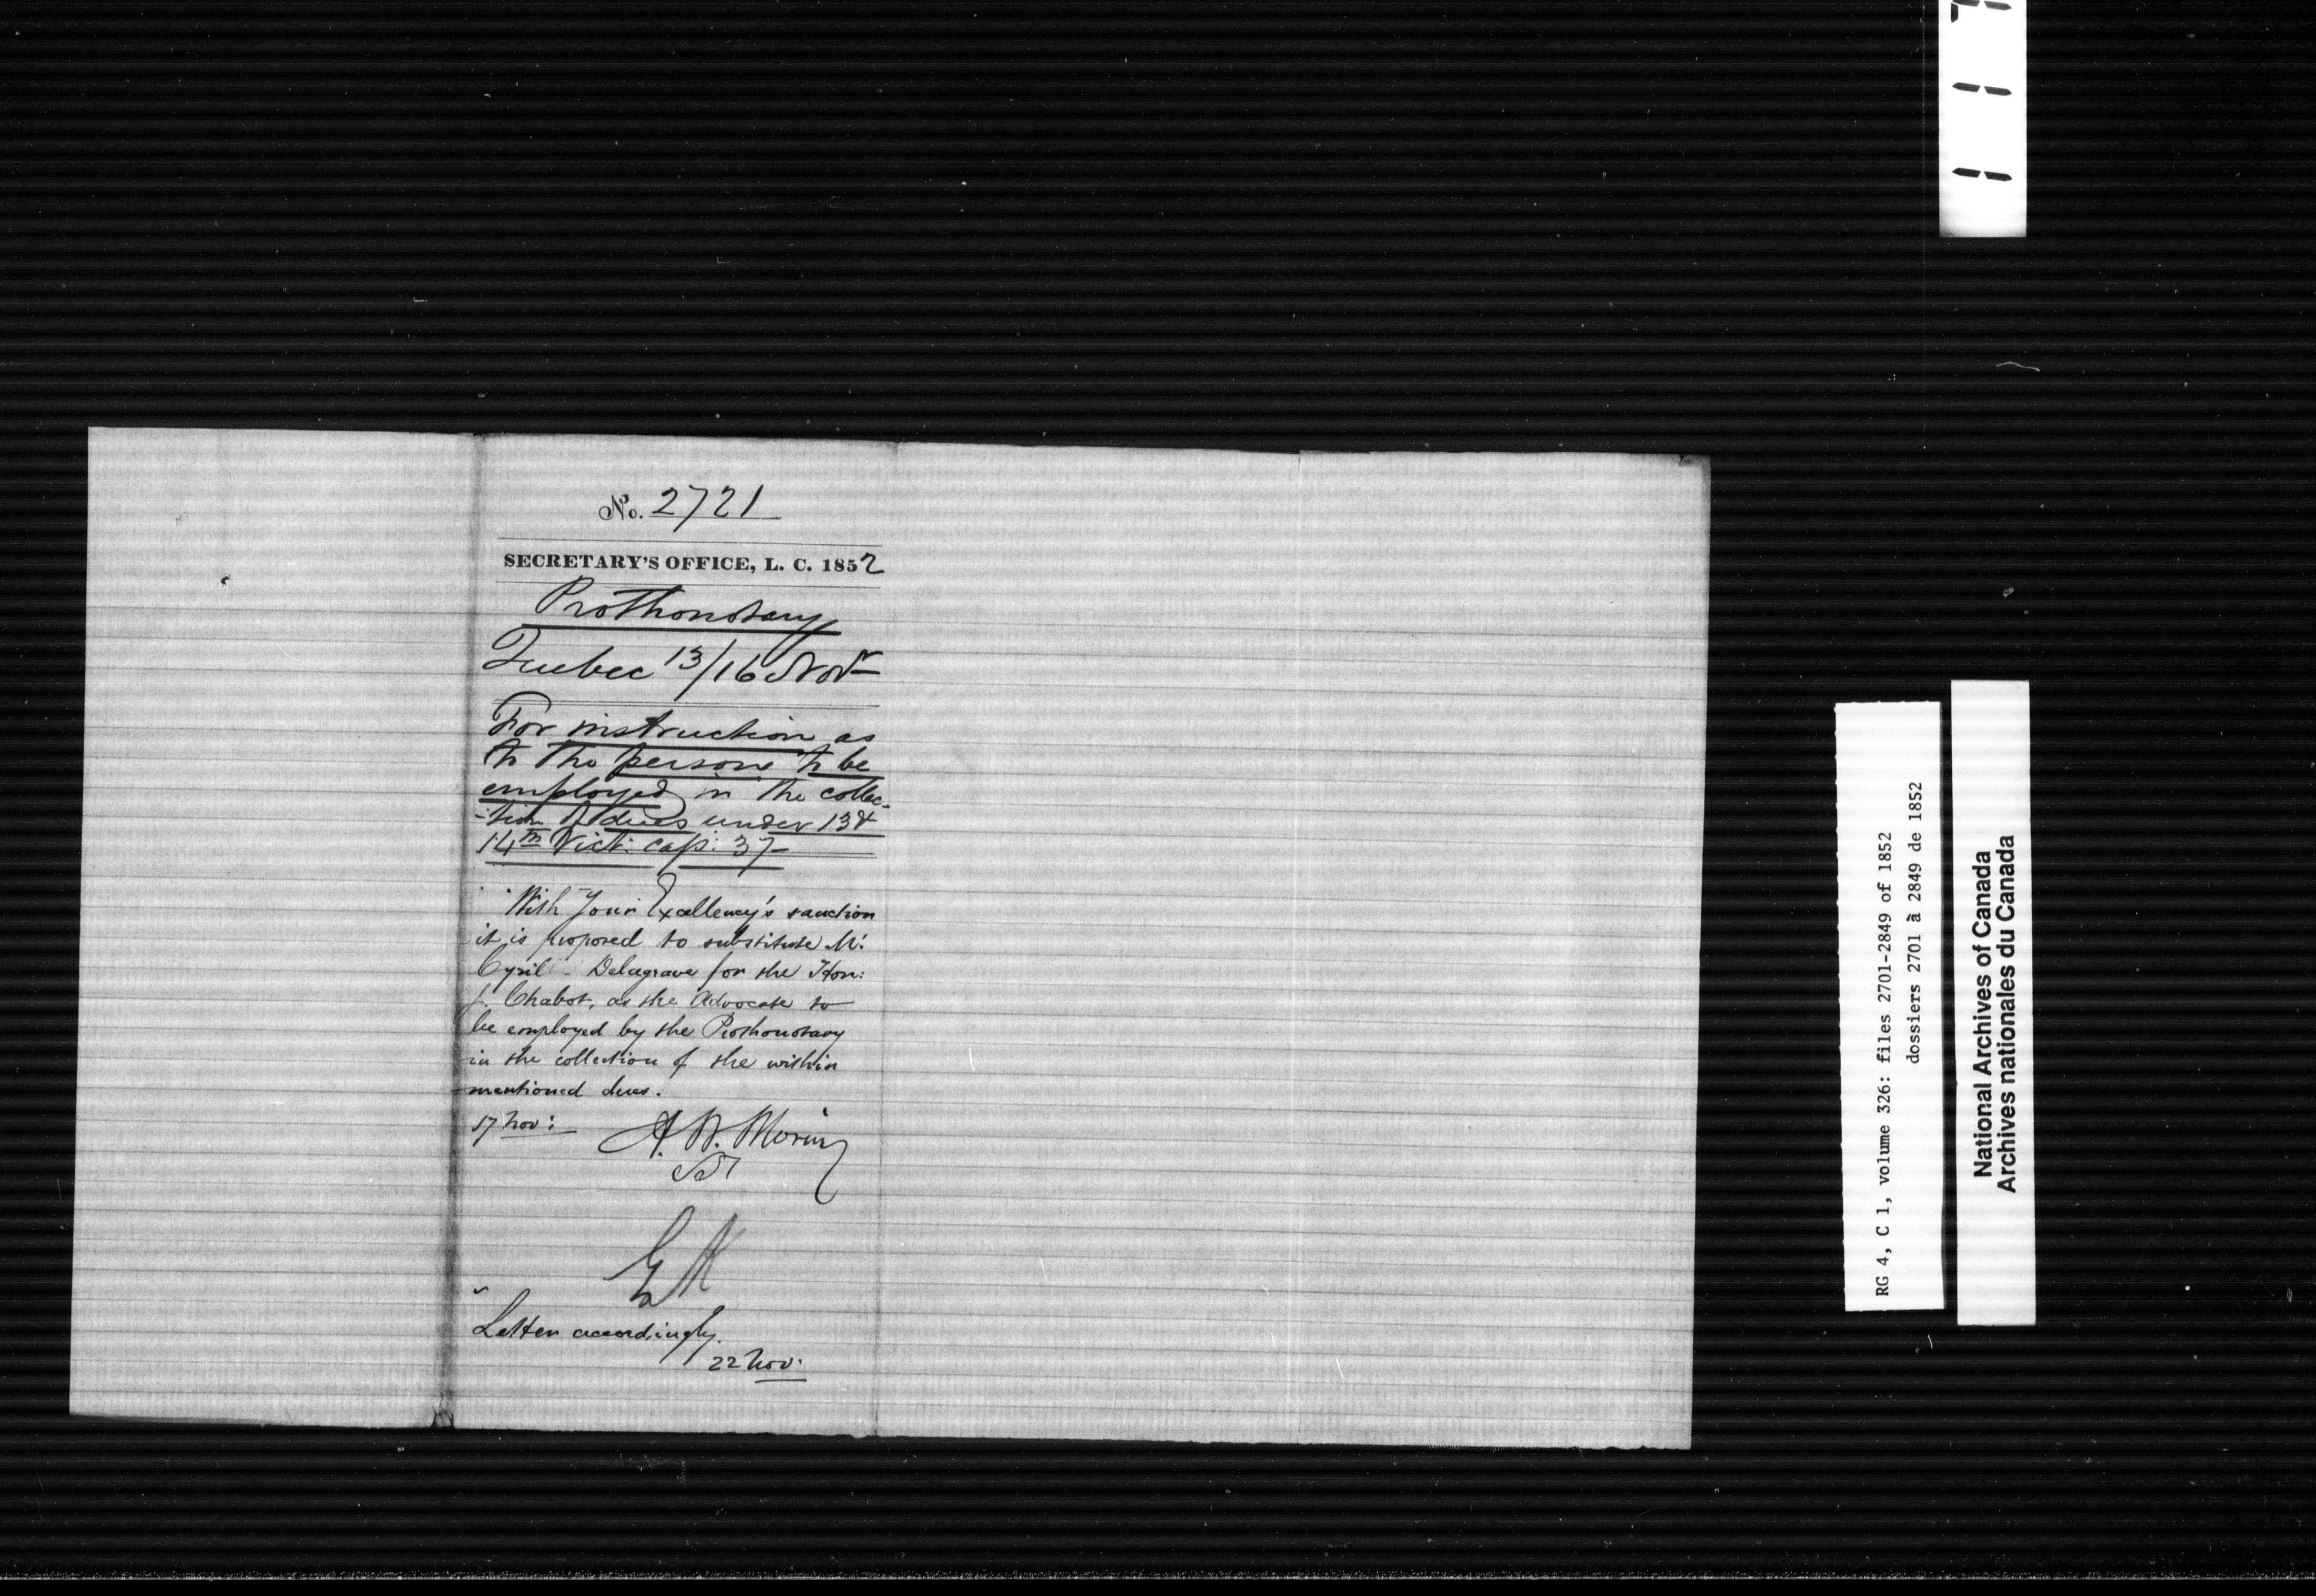 No. 2721
SECRETARY'S OFFICE, L. C. 1852
Prothonotary
Quebec 13/16 Novr
For instruction as
to the person to be
employed in the collec-
-tion of dues under 13 &
14th Vict: cap: 37-
With Your Excellency's sanction
it is proposed to substitute Mr.
Cyril - Delagrave for the Hon:
J. Chabot, as the Advocate to
be employed by the Prothonotary
in the collection of the within
mentioned dues.
17 Nov:
A. N. Morin
EK
Letter accordingly.
22 Nov.
RG 4, C 1, volume 326: files 2701-2849 of 1852
dossiers 2701 à 2849 de 1852
National Archives of Canada
Archives nationales du Canada